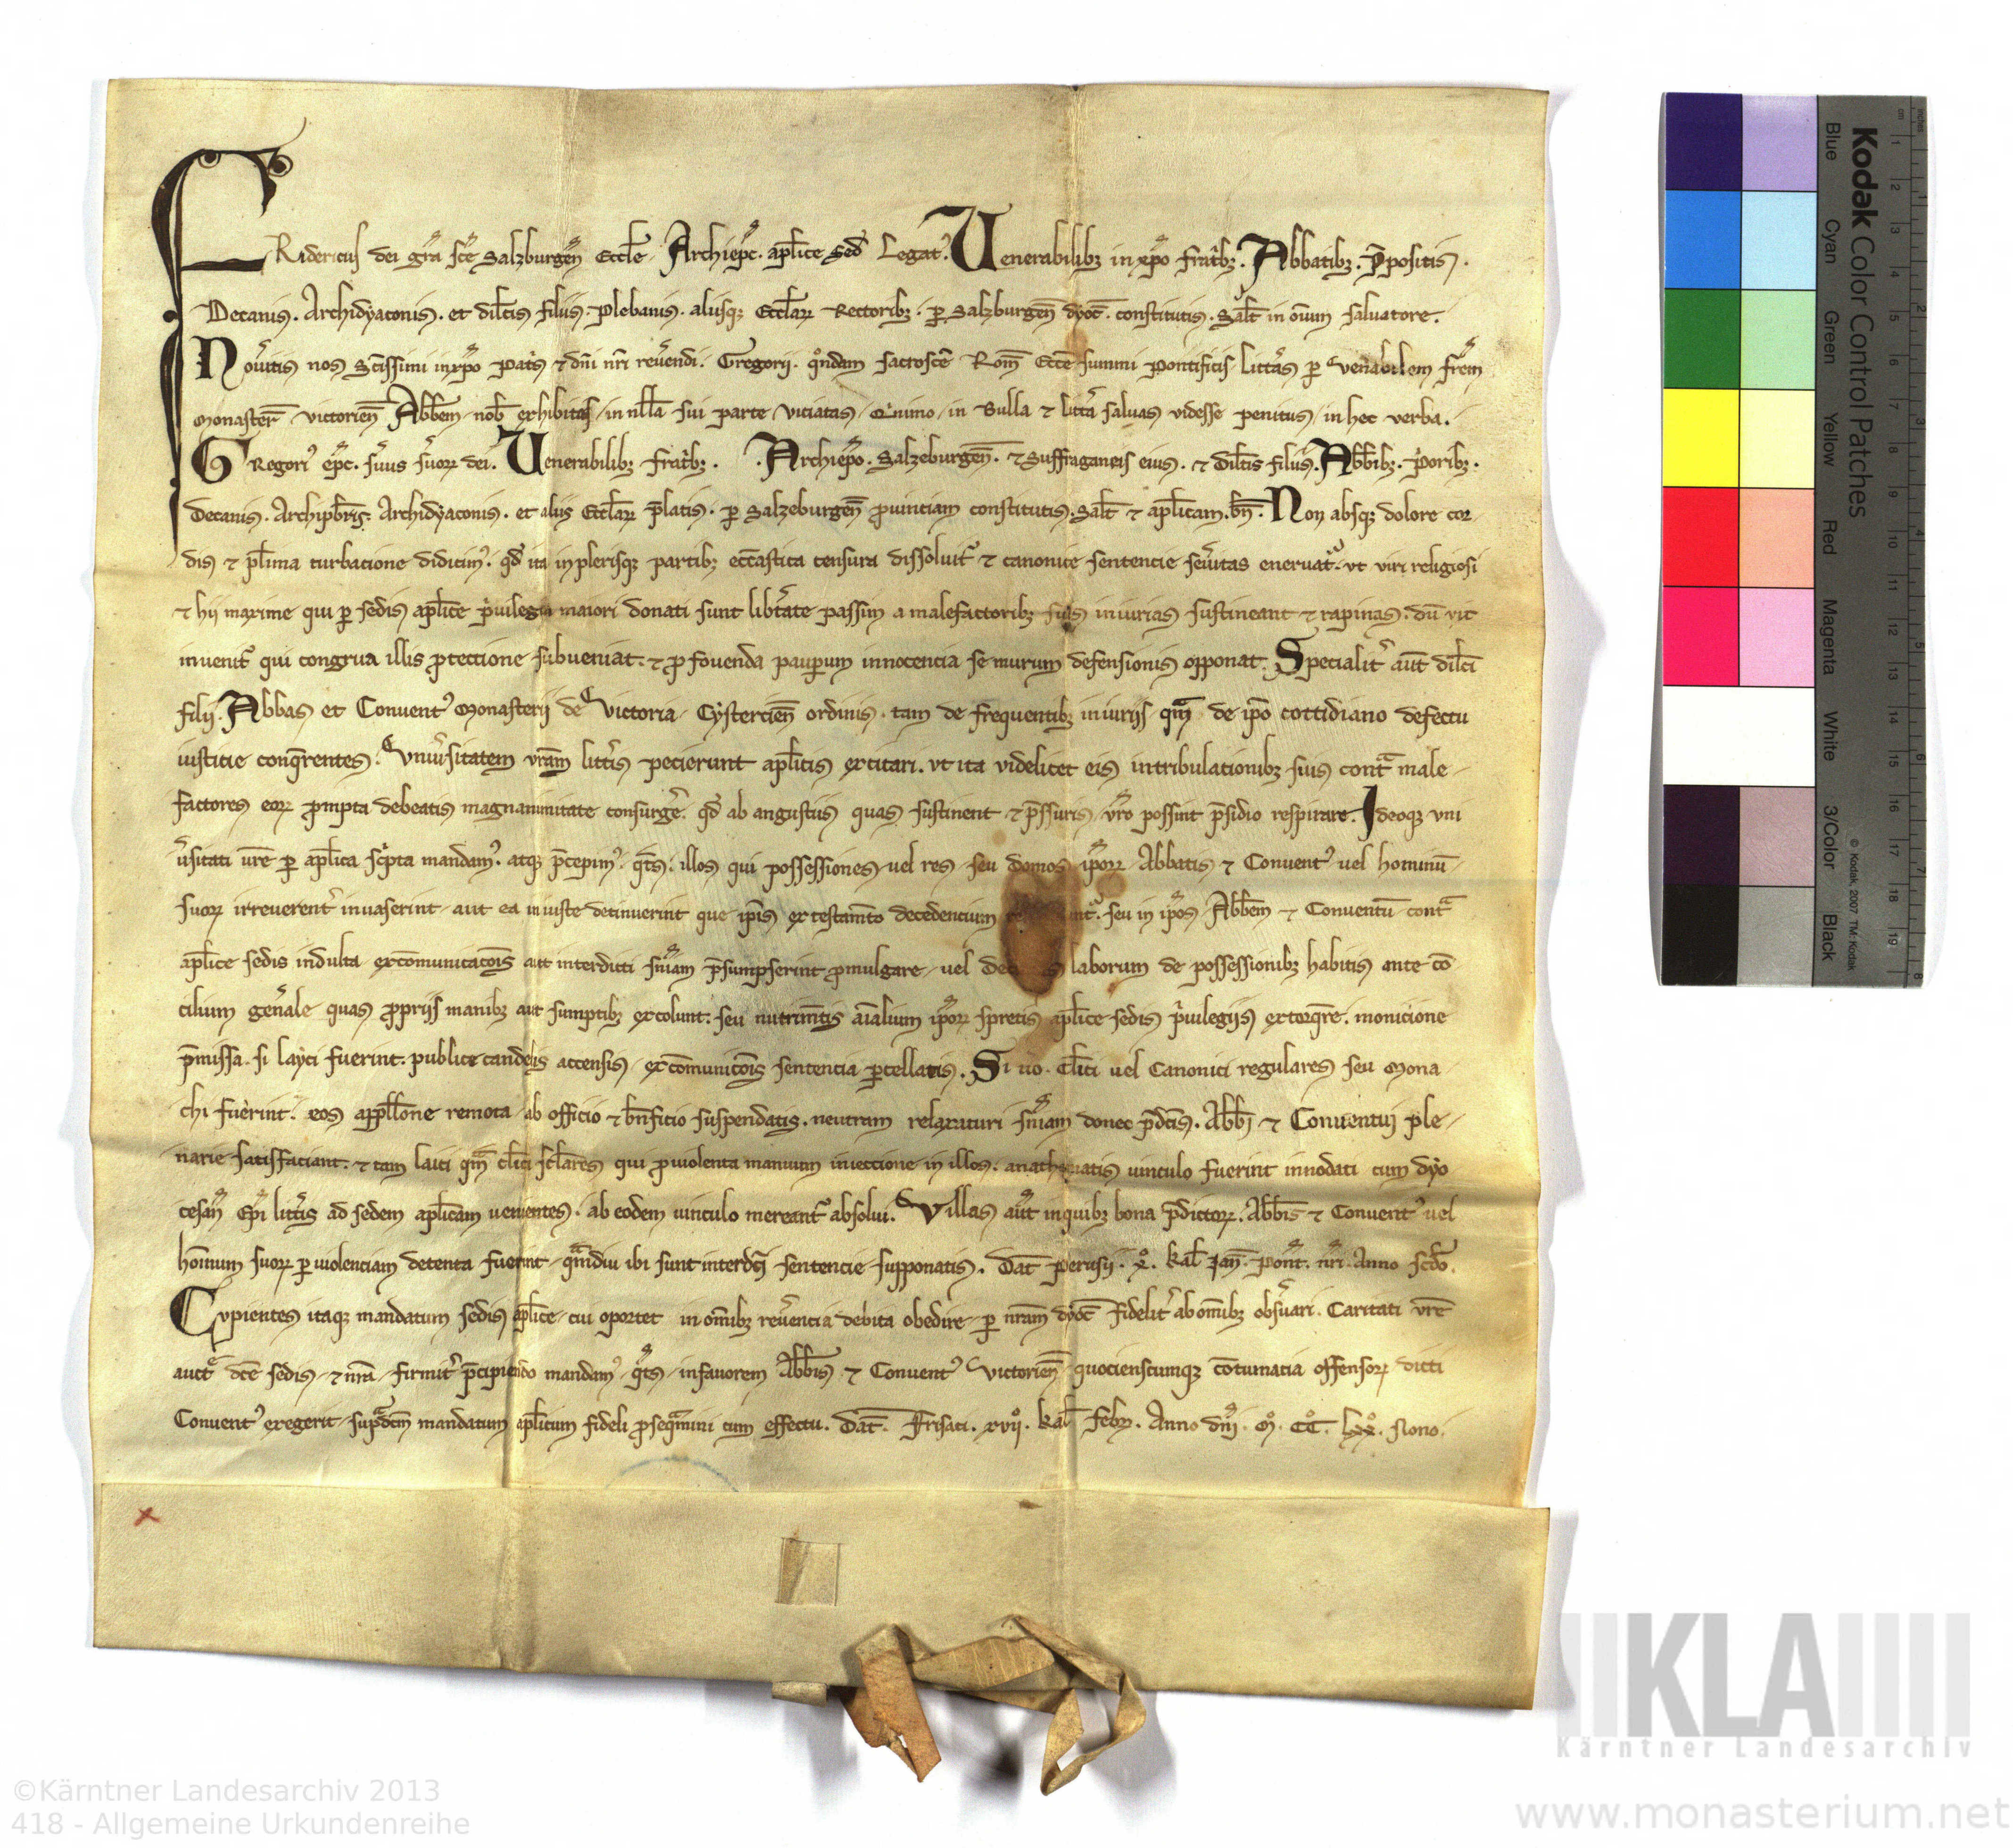 FRidericus dei gr̄a sc̄e Salzburgen̄ Eccl̄e Archiep̄c. apl̄ice Sed̄ Legat᾽. Venerabilibꝫ in xp̄o fratr̄ibꝫ. Abbatibꝫ. P̄positis.
Decanis. Archidyaconis. et dil̄cis filiis. Plebanis. aliisqꝫ Eccl̄aꝝ Rectoribꝫ. ꝑ Salzburgen̄ dyoc̄. constitutis. Salt̄ in om̄ium saluatore.
Nou͛itis nos Sc̄issimi in xp̄o Pat͛s ⁊ dn̄i nr̄i reu͛endi. Gregorii. q͛ndam sacrosc̄e Rom̄ Ecc̄e summi Pontificis litt͛as ꝑ ven͛abilem fr̄em
Monaster̄ Victorien̄ Abb̄em nob̄ exhibitas in nll̄a sui parte viciatas. Q͛inimo in Bulla ⁊ litt͛a saluas vidisse penitus in hec verba.
GRegori᾽ ep̄c. s͛uus s͛uoꝝ dei. Venerabilibꝫ fratr̄ibꝫ. . Archiep̄o. Salzeburgen̄. ⁊ Suffraganeis eius. ⁊ dil̄cis filiis. Abb̄ibꝫ. P͛oribꝫ.
Decanis. Archipb̄ris. Archidyaconis. et aliis Eccl̄aꝝ p̄latis. ꝑ Salzeburgen̄ ꝓuinciam constitutis. Salt̄ ⁊ apl̄icam. bn̄. Non absqꝫ dolore cor-
dis ⁊ pl̄ima turbacione didicim᾽. qd̄ ita in plerisqꝫ partibꝫ ecc̄astica censura dissoluit᾽ ⁊ canonice sentencie seu͛itas eneruat᾽. vt viri religiosi
⁊ hii maxime qui ꝑ sedis apl̄ice p͛uilegia maiori donati sunt lib͛tate passim a malefactoribꝫ suis iniurias sustineant ⁊ rapinas. dū vix
inuenit᾽ qui congrua illis ꝓteccione subueniat. ⁊ ꝓ fouenda pauꝑum innocencia se murum defensionis opponat. Specialit͛ aut̄ dil̄ci
filii. Abbas et Conuent᾽ Monasterii de Victoria Cystercien̄ ordinis. tam de frequentibꝫ iniuriis qm̄ de ip̄o cottidiano defectu
iusticie conq̄rentes. Vniu͛sitatem vr̄am litt͛is pecierunt apl̄icis excitari. vt ita videlicet eis in tribulationibꝫ suis contͣ male-
factores eoꝝ ꝓmpta debeatis magnanimitate consurge͛. qd̄ ab angustiis quas sustinent ⁊ p̄ssuris vr̄o possint p̄sidio respirare. Ideoqꝫ vni
u͛sitati vr̄e ꝑ apl̄ica sc͛pta mandam᾽. atqꝫ p̄cepim᾽. q̄ts. illos qui possessiones vel res seu domos ip̄oꝝ Abbatis ⁊ Conuent᾽ vel hominū
suoꝝ irreuerent͛ inuaserint aut ea iniuste detinuerint que ip̄is ex testam̄to decedencium seu in ip̄os Abb̄em ⁊ Conuentū contͣ
apl̄ice sedis indulta excōmunicac̄ois aut interdicti sn̄iam p̄sumpserint ꝓmulgare vel laborum de possessionibꝫ habitis ante cō-
cilium gen͛ale quas ꝓpriis manibꝫ aut sumptibꝫ excolunt. seu nutrim̄tis aīalium ip̄oꝝ spretis apl̄ice sedis p͛uilegiis extorq̄re. monicione
p̄missa. si layci fuerint. publice candelis accensis excōmunic̄ois sentencia ꝑcellatis. Si ūo. cl̄ici uel Canonici regulares seu Mona-
chi fuerint. eos appll̄one remota ab officio ⁊ bn̄ficio suspendatis. neutram relaxaturi sn̄iam donec p̄dc̄is. Abb̄i ⁊ Conuentui ple-
narie satisfaciant. ⁊ tam laici qm̄ cl̄ici scl̄ares qui ꝓ uiolenta manuum inieccione in illos. anathematis uinculo fuerint innodati cum dyo
cesan̄ Ep̄i litt͛is ad sedem apl̄icam uenientes. ab eodem uinculo mereant᾽ absolui. Villas aūt in quibꝫ bona p̄dictoꝝ. Abb̄is ⁊ Conuent᾽ uel
hoīnum suoꝝ ꝑ uiolenciam detenta fuerint qͣmdiu ibi sunt interdc̄i sentencie supponatis. Dat̄ Perusii. x. kal̄ Jan̄. Pont̄. nr̄i. Anno scd̄o.
Cvpientes itaqꝫ mandatum sedis apl̄ice cui oportet in om̄ibꝫ reu͛encia debita obedire ꝑ nr̄am dyoc̄ fidelit͛ ab om̄ibꝫ obs͛uari. Caritati vr̄e
auct̄ dc̄e sedis ⁊ nr̄a firmit͛ p̄cipiendo mandam᾽ q̄ts in fauorem Abb̄is ⁊ Conuent᾽ Victorien̄ quocienscumqꝫ cōtumacia offensoꝝ dicti
Conuent᾽ exegerit supͣdc̄m mandatum apl̄icum fideli ꝓseqͣmini cum effectu. Dat̄. Frisaci. xvii. kal̄ febr̄. Anno dn̄i. M. CC. Lxx. Nono.
Kodak Color Control Patches
© Kodak, 2007 TM: Kodak
Blue Cyan Green Yellow Red Magenta White 3/Color Black
inches 1 2 3 4 5 6 7 8
cm 1 2 3 4 5 6 7 8 9 10 11 12 13 14 15 16 17 18 19
KLA
Kärntner Landesarchiv
©Kärntner Landesarchiv 2013
418 - Allgemeine Urkundenreihe
www.monasterium.net